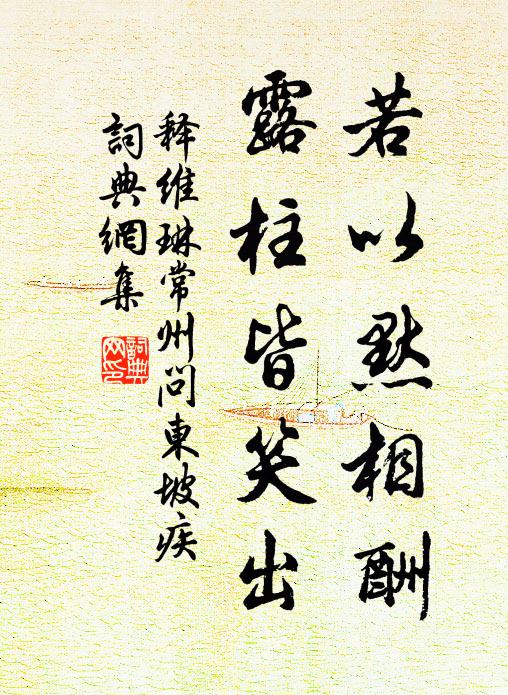 若以默相酬
露柱皆笑出
释維琳常州问東坡疾
詞典網集
詞典网印